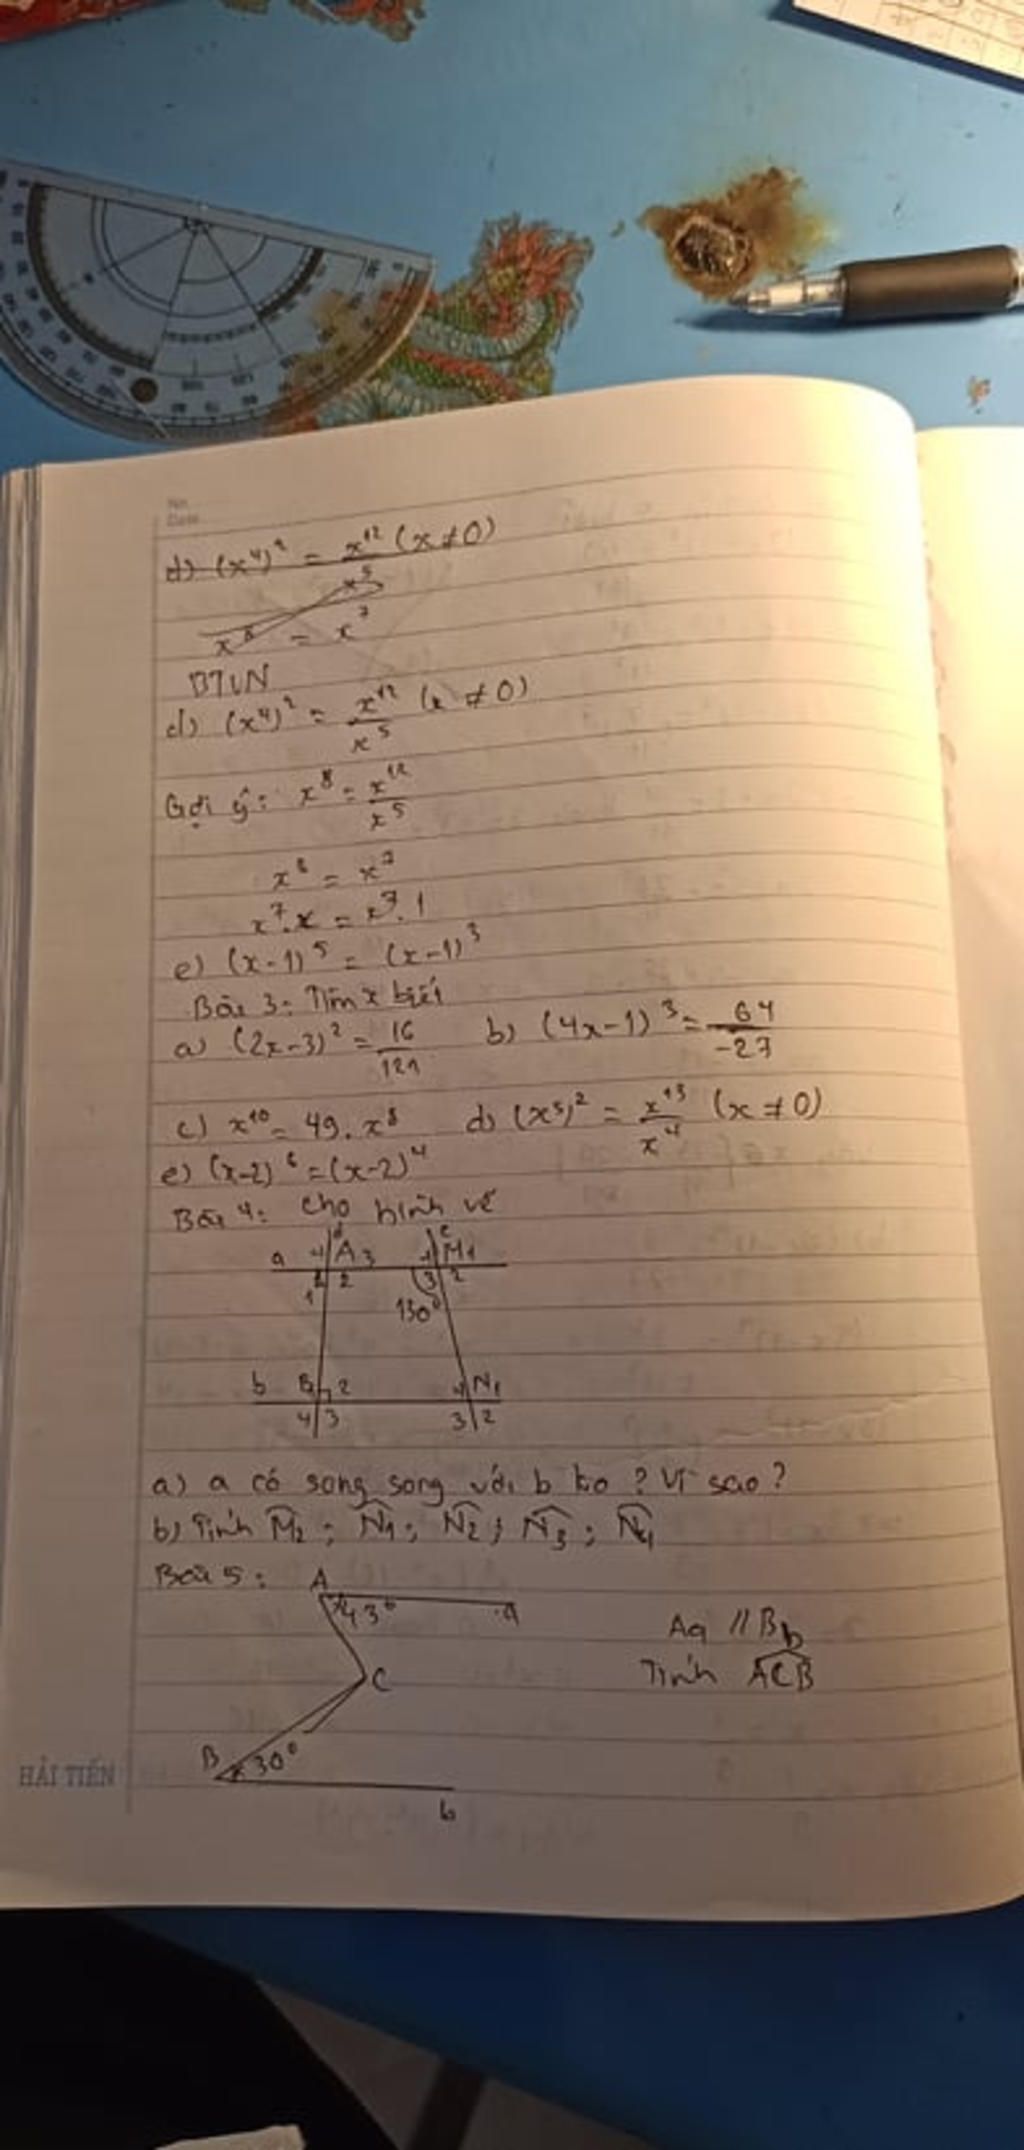 No.
Date
d) (x⁴)² = x¹² / x⁵ (x ≠ 0)
x⁸ = x⁷
BTVN
d) (x⁴)² = x¹² / x⁵ (x ≠ 0)
Gợi ý: x⁸ = x¹² / x⁵
x⁸ = x⁷
x⁷. x = x⁷. 1
e) (x-1)⁵ = (x-1)³
Bài 3: Tìm x biết
a) (2x-3)² = 16 / 121 b) (4x-1)³ = 64 / -27
c) x¹⁰ = 49. x⁸ d) (x⁵)² = x¹³ / x⁴ (x ≠ 0)
e) (x-2)⁶ = (x-2)⁴
Bài 4: Cho hình vẽ
a 4 A 3 c M 1
1 2 3 2
130°
b B 2 4 N 1
4 3 3 2
a) a có song song với b ko? Vì sao?
b) Tính M₂; N₁; N₂; N₃; N₄
Bài 5: A
43° a Aa // Bb
C Tính ACB
B 30°
b
HẢI TIẾN